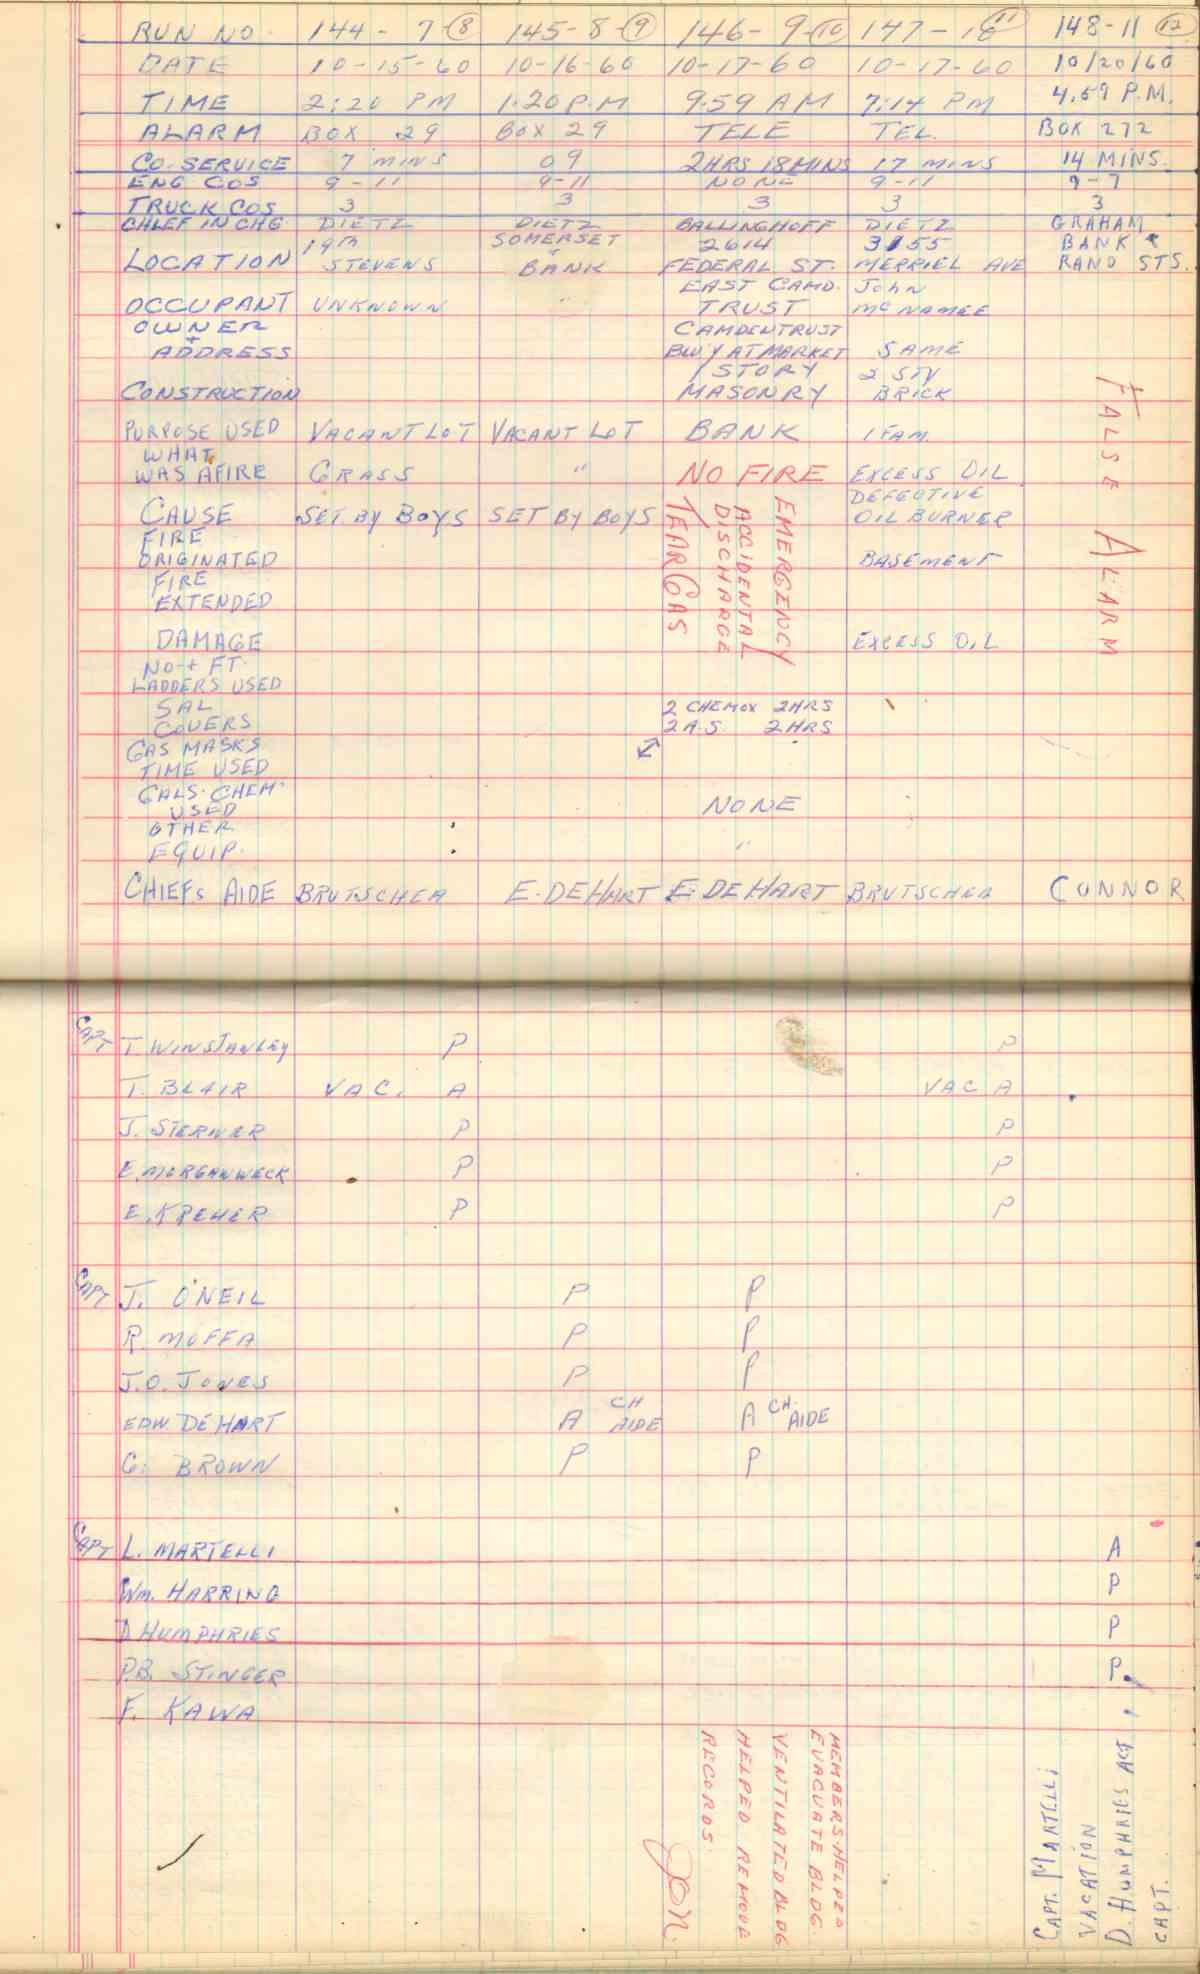 RUN NO. 144 - 7-(8) 145-8-(9) 146-9-(10) 147-10(11) 148-11 (12)
DATE 10-15-60 10-16-60 10-17-60 10-17-60 10/20/60
TIME 2:20 PM 1:20 P.M 9:59 AM 7:14 PM 4:59 P.M.
ALARM BOX 29 BOX 29 TELE TEL. BOX 272
CO. SERVICE 7 MINS 09 2HRS 18MINS 17 MINS 14 MINS.
ENG COS 9-11 9-11 NONE 9-11 9-7
TRUCK COS 3 3 3 3 3
CHIEF IN CHG DIETZ DIETZ BALLINGHOFF DIETZ GRAHAM
19TH SOMERSET 2614 3155 BANK &
LOCATION STEVENS + BANK FEDERAL ST. MERRIEL AVE RAND STS.
EAST CAMD. John
OCCUPANT UNKNOWN " TRUST McNAMEE
OWNER CAMDEN TRUST
+ ADDRESS BW'Y AT MARKET SAME
1 STORY 2 STY
CONSTRUCTION MASONRY BRICK
PURPOSE USED VACANT LOT VACANT LOT BANK 1 FAM.
WHAT
WAS AFIRE GRASS " NO FIRE EXCESS OIL
DEFECTIVE
CAUSE SET BY BOYS SET BY BOYS OIL BURNER
FIRE
ORIGINATED BASEMENT
FIRE
EXTENDED
EMERGENCY
ACCIDENTAL
DISCHARGE
TEAR GAS
FALSE ALARM
DAMAGE EXCESS OIL
NO + FT.
LADDERS USED
SAL 2 CHEMOX 2HRS
COVERS 2 A.S. 2HRS
GAS MASKS
TIME USED
GALS. CHEM.
USED NONE
OTHER
EQUIP. "
CHIEFS AIDE BRUTSCHEA E. DEHART E. DEHART BRUTSCHEA CONNOR
CAPT T. WINSTANLEY P P
T. BLAIR VAC. A VAC A
J. STERNER P P
E. MORGANWECK P P
E. KREHER P P
CAPT J. O'NEIL P P
R. MOFFA P P
J.O. JONES P P
EDW. DEHART A CH AIDE A CH. AIDE
G. BROWN P P
CAPT L. MARTELLI A
Wm. HARRING P
D HUMPHRIES P
P.B. STINGER P.
F. KAWA
MEMBERS HELPED
EVACUATE BLDG.
VENTILATED BLDG
HELPED REMOVE
RECORDS.
JON.
CAPT. MARTELLI
VACATION
D. HUMPHRIES ACT.
CAPT.